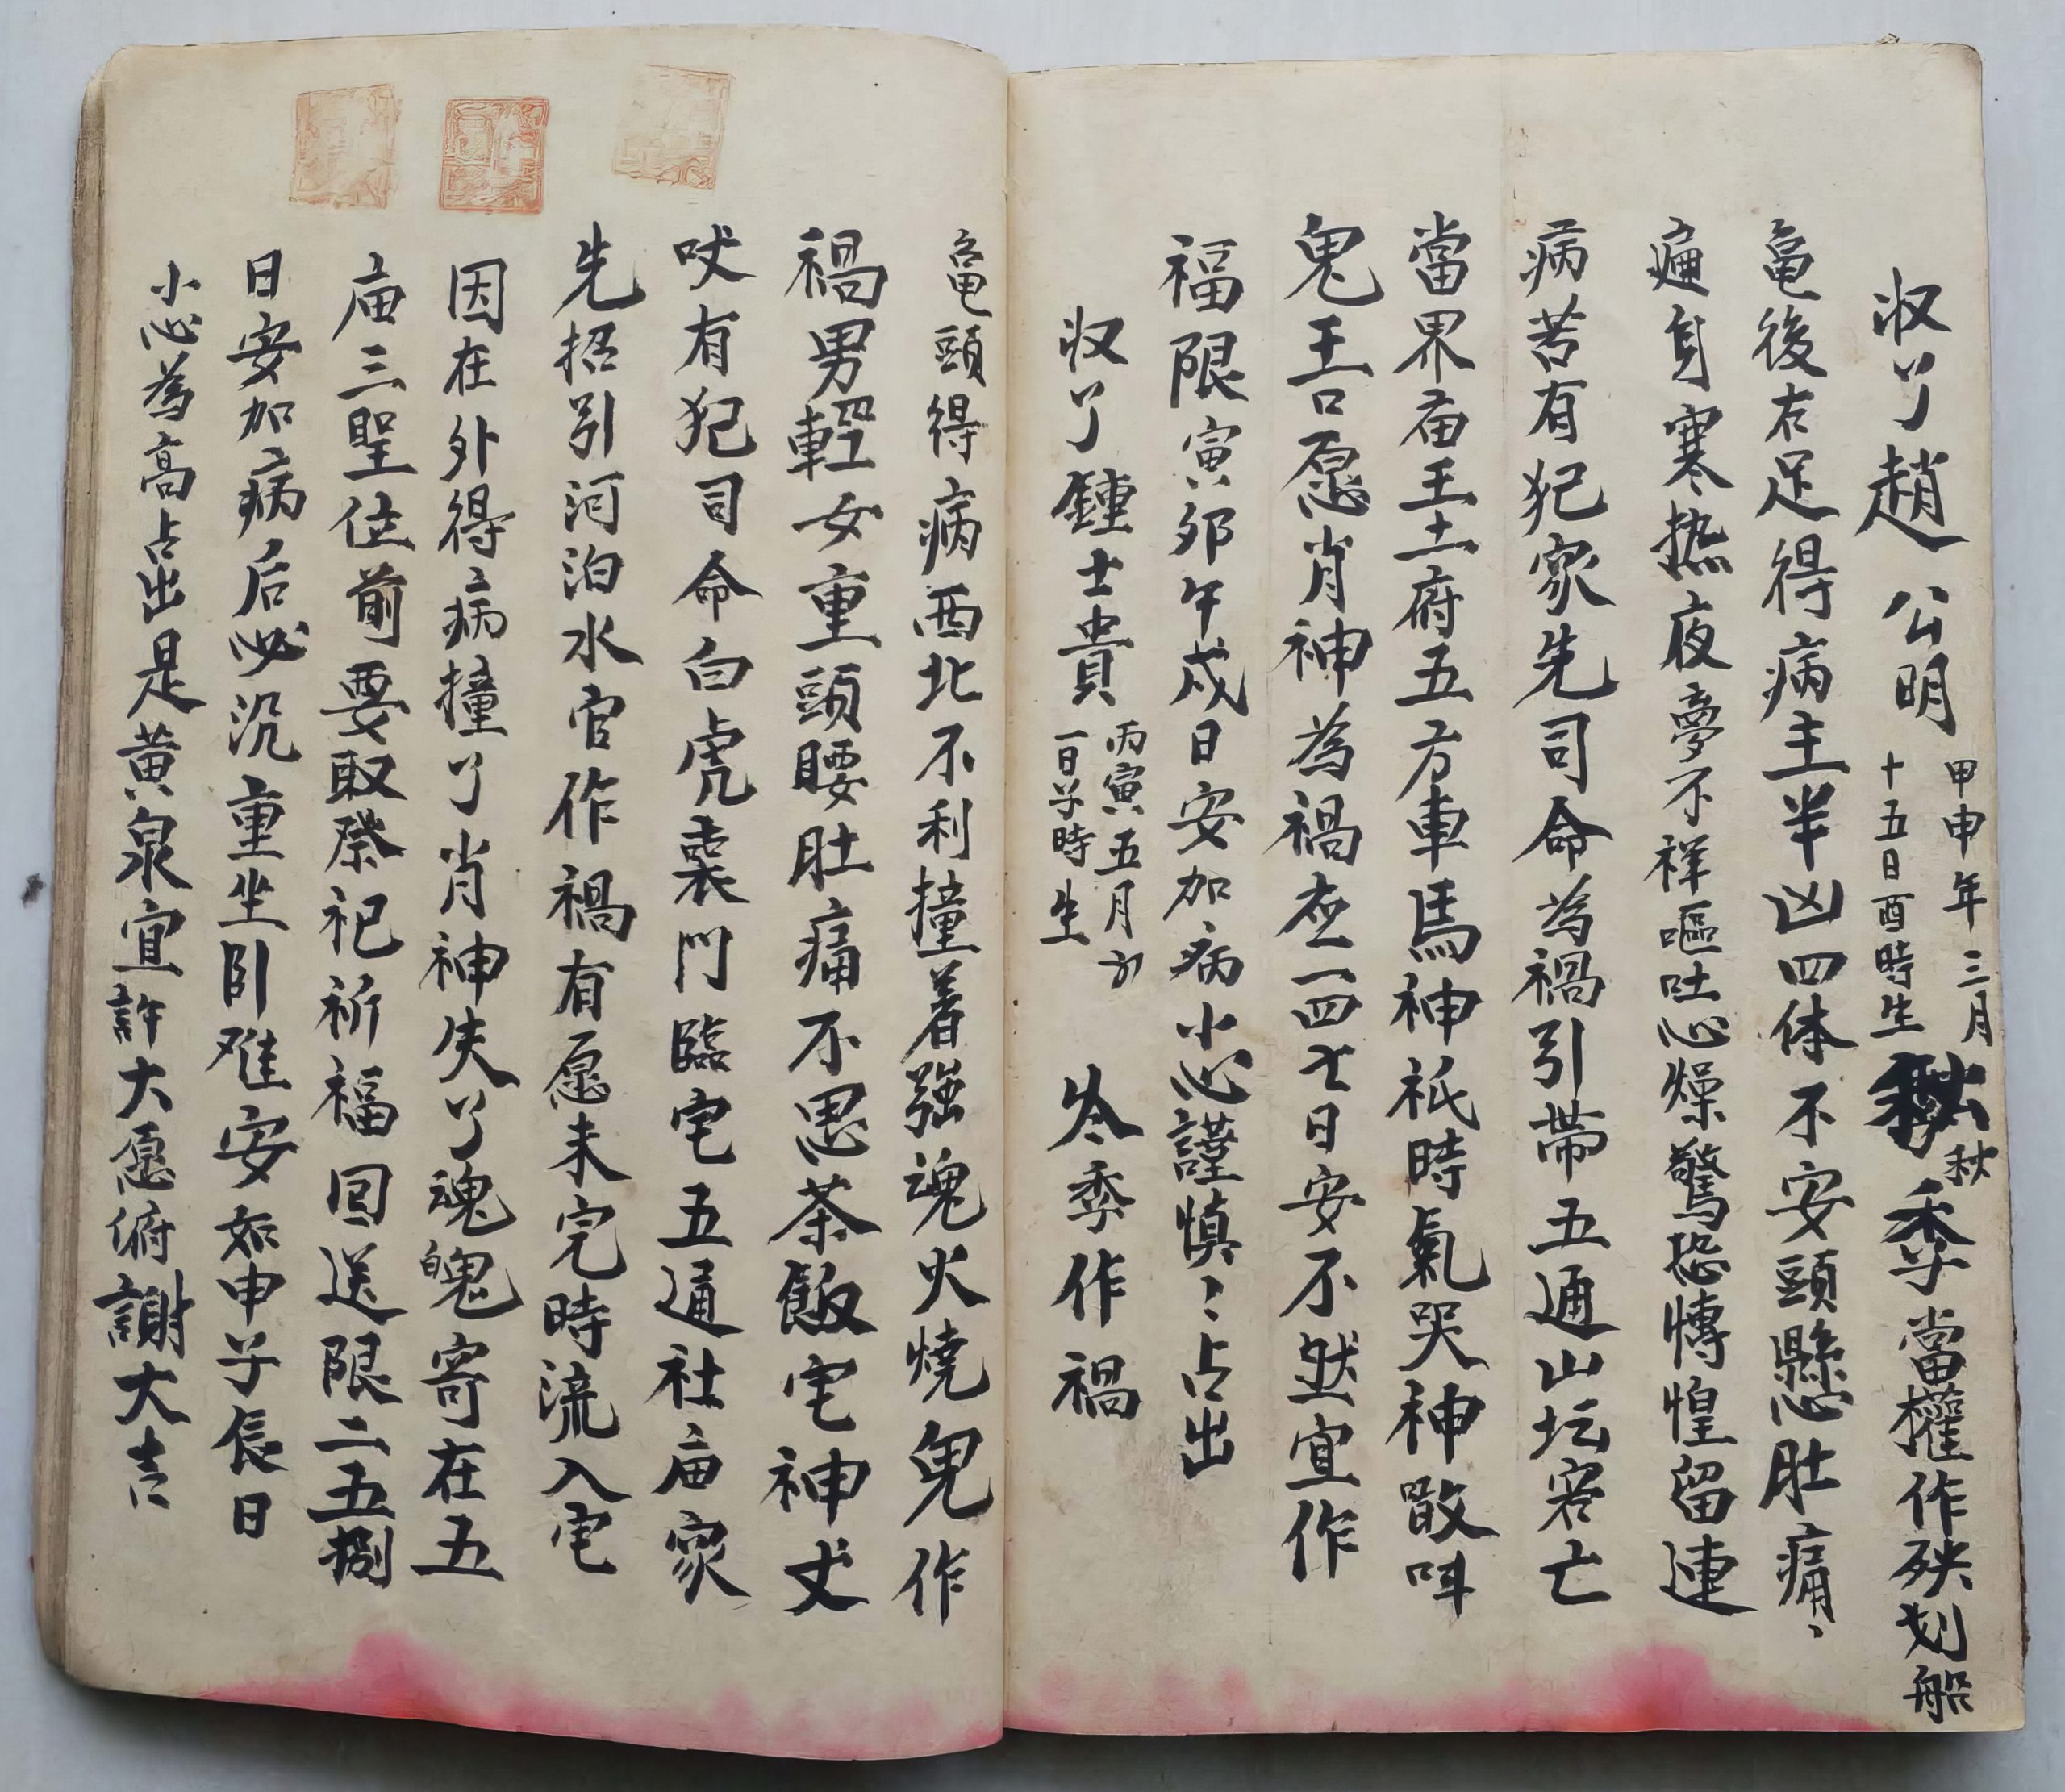 收丫趙公明 甲申年三月十五日酉時生 秋季當權作殃划船
亀後右足得病主半凶四体不安頭懸肚痛丶
遍身寒热夜夢不祥嘔吐心燥驚恐慱惶留連
病苦有犯家先司命為禍引帶五通山坛客亡
當界庙王土府五方車馬神祇時氣哭神散呌
鬼王吉愿肖神為禍在一四七日安不然宜作
福限寅卯午戍日安加病小心謹慎〻占出
收丫鍾士貴 丙寅五月 一日子時生 冬季作禍
亀頭得病西北不利撞着强魂火燒鬼作
禍男輕女重頭腰肚痛不思茶飯宅神丈
吠有犯司命白虎喪門臨宅五通社庙家
先招引河泊水官作禍有愿未完時流入宅
因在外得病撞丫肖神失丫魂魄寄在五
庙三聖位前要取祭祀祈福回送限二五捌
日安加病后必沉重坐卧难安如申子辰日
小心為高占出是黄泉宜許大愿俯謝大吉